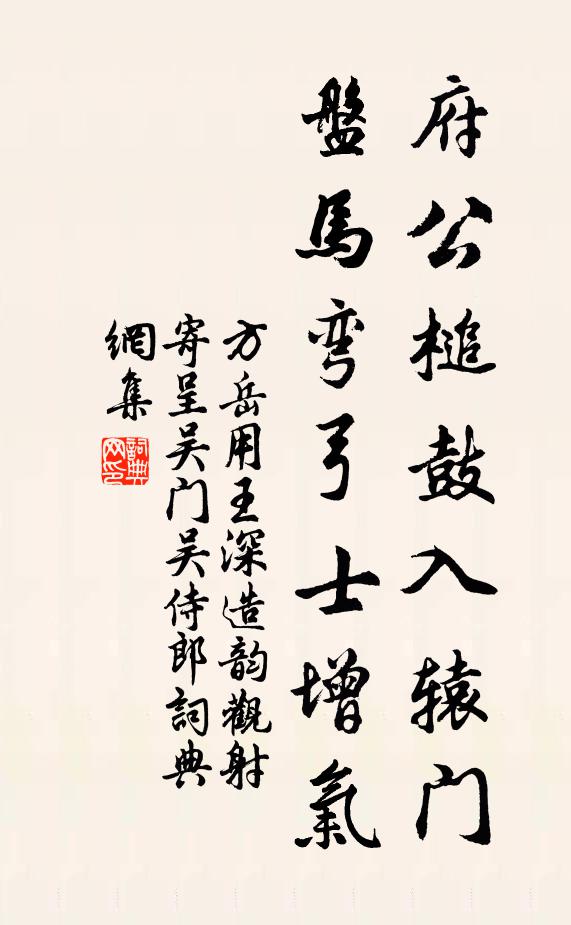 府公槌鼓入辕门
盤馬弯弓士增氣
方岳用王深造韵觀射
寄呈吴门吴侍郎詞典
網集
詞典网印